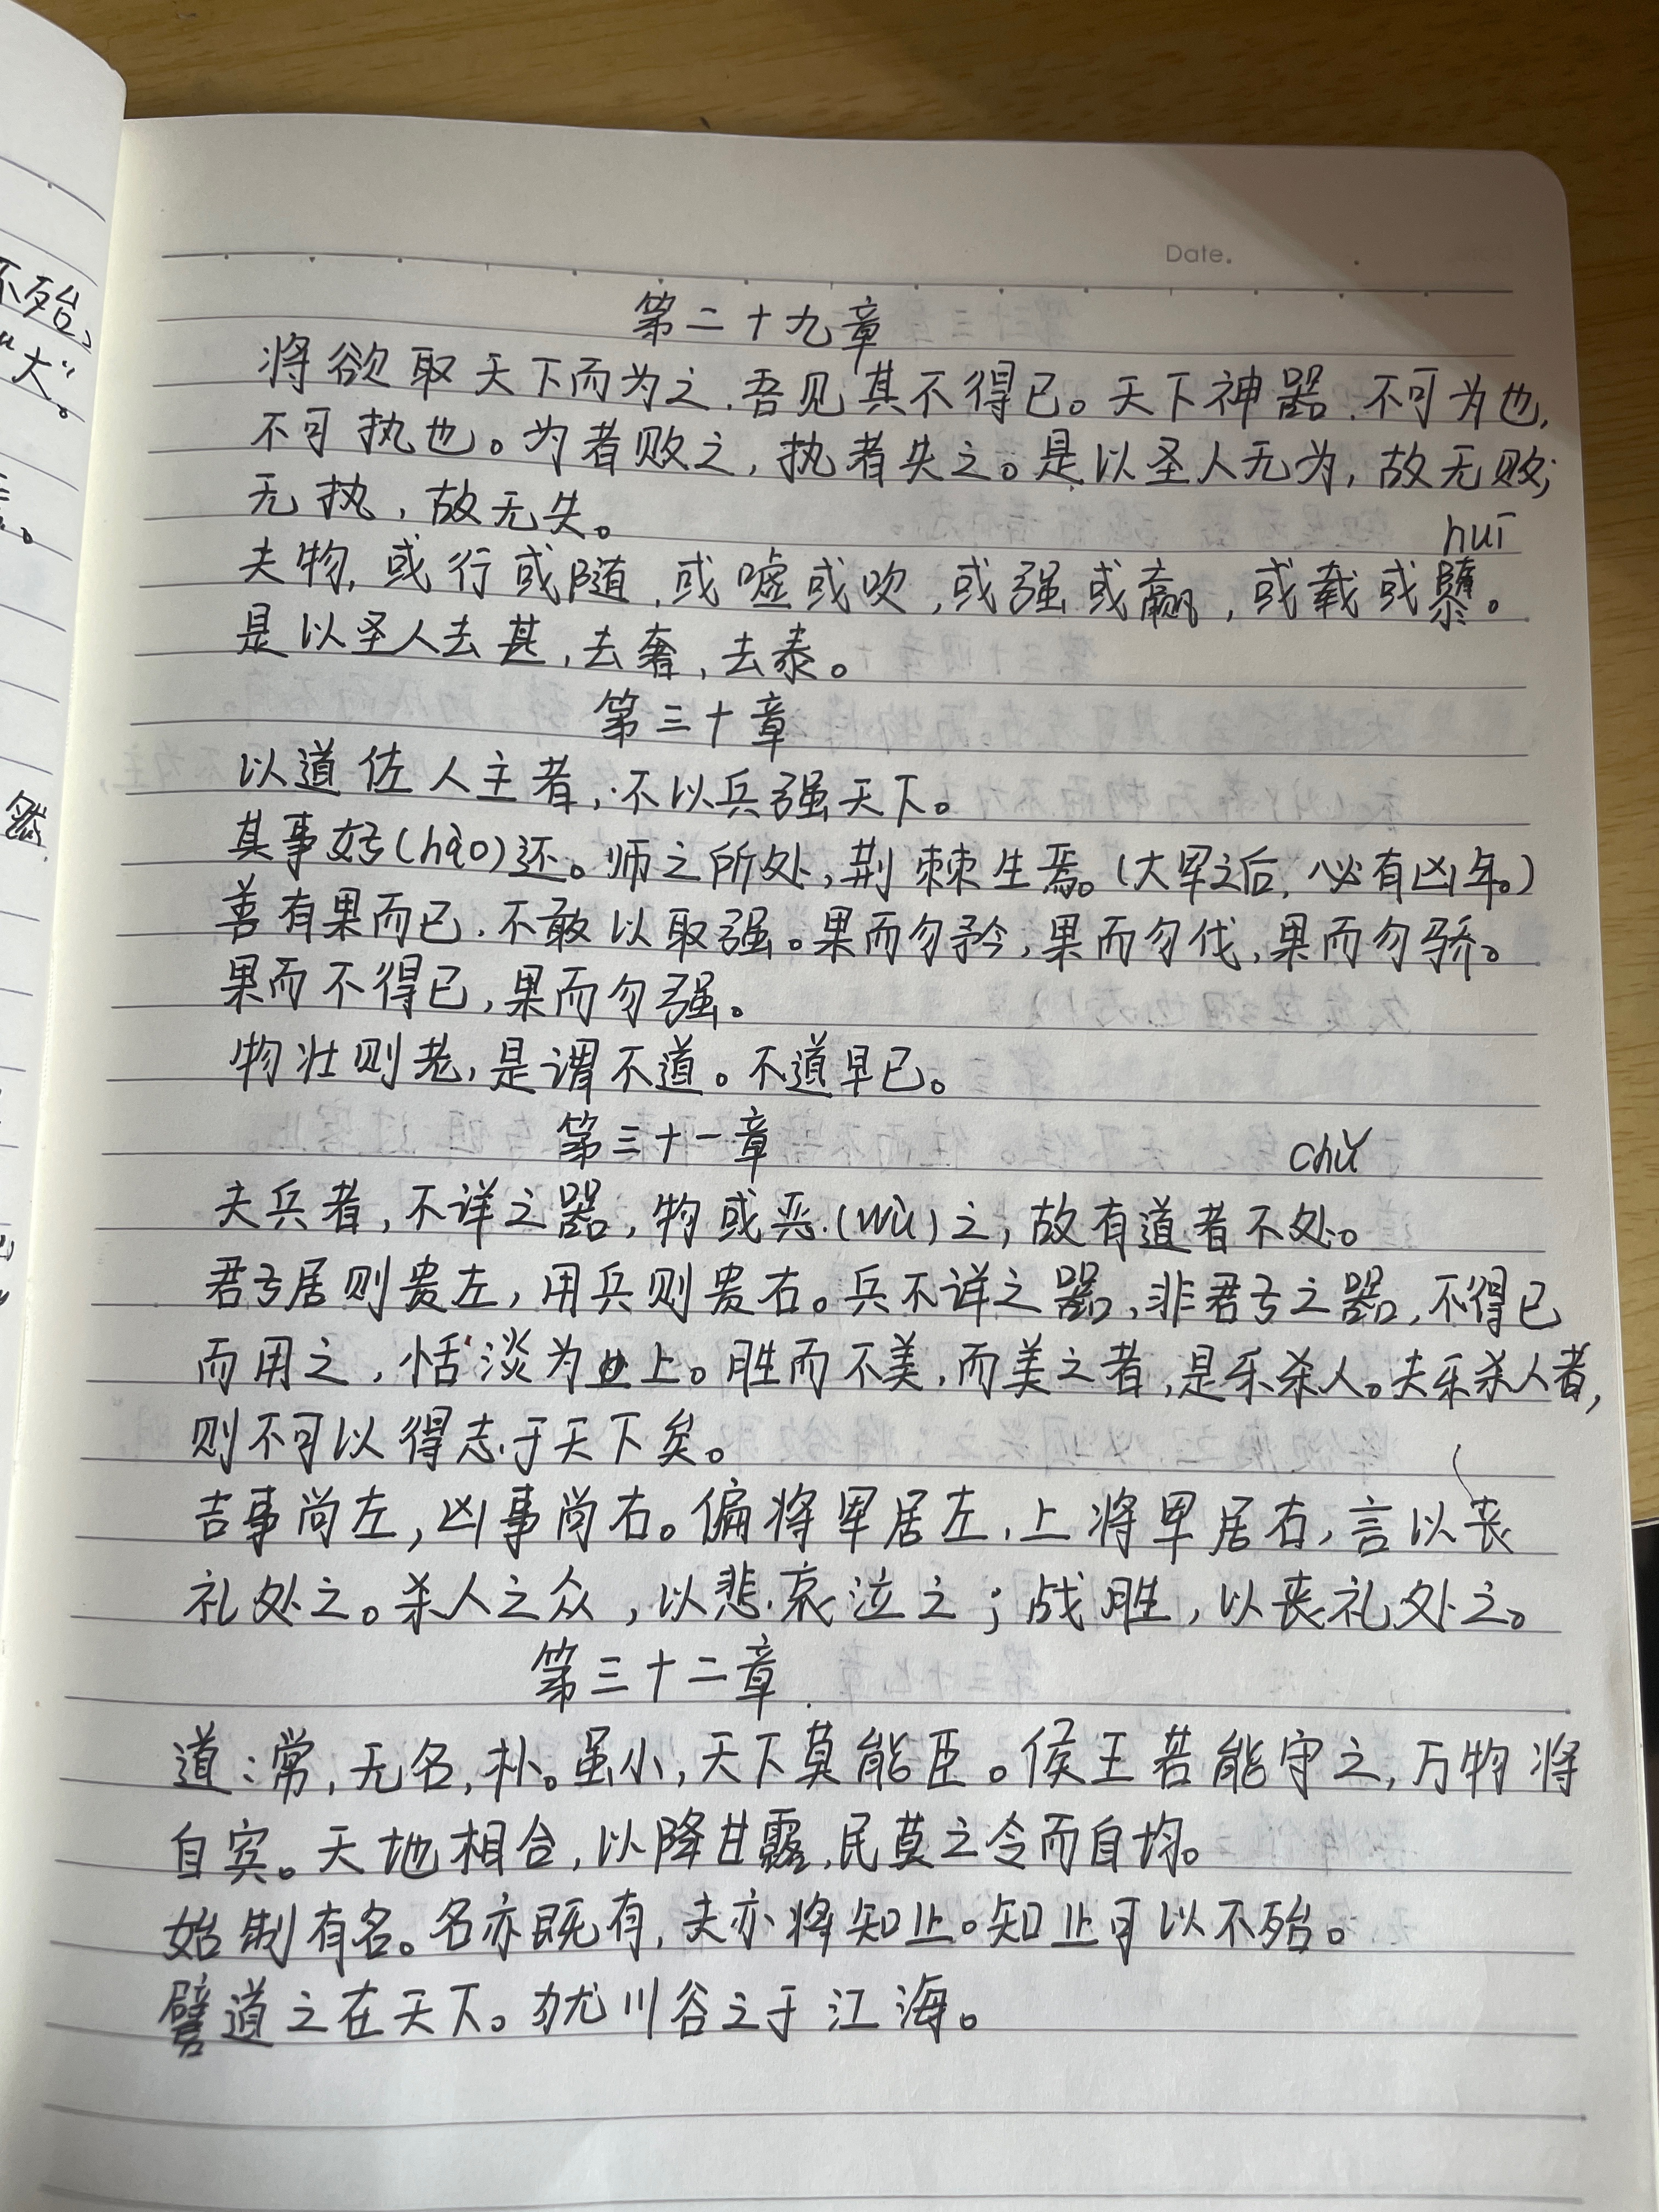 Date.
第二十九章
将欲取天下而为之,吾见其不得已。天下神器,不可为也,
不可执也。为者败之,执者失之。是以圣人无为,故无败;
无执,故无失。
huī
夫物,或行或随,或嘘或吹,或强或羸,或载或隳。
是以圣人去甚,去奢,去泰。
第三十章
以道佐人主者,不以兵强天下。
其事好(hào)还。师之所处,荆棘生焉。(大军之后,必有凶年。)
善有果而已,不敢以取强。果而勿矜,果而勿伐,果而勿骄。
果而不得已,果而勿强。
物壮则老,是谓不道。不道早已。
第三十一章
chǔ
夫兵者,不详之器,物或恶(wù)之,故有道者不处。
君子居则贵左,用兵则贵右。兵不详之器,非君子之器,不得已
而用之,恬淡为上。胜而不美,而美之者,是乐杀人。夫乐杀人者,
则不可以得志于天下矣。
吉事尚左,凶事尚右。偏将军居左,上将军居右,言以丧
礼处之。杀人之众,以悲哀泣之;战胜,以丧礼处之。
第三十二章
道:常,无名,朴。虽小,天下莫能臣。侯王若能守之,万物将
自宾。天地相合,以降甘露,民莫之令而自均。
始制有名。名亦既有,夫亦将知止。知止可以不殆。
譬道之在天下。犹川谷之于江海。
不殆、
"大"。